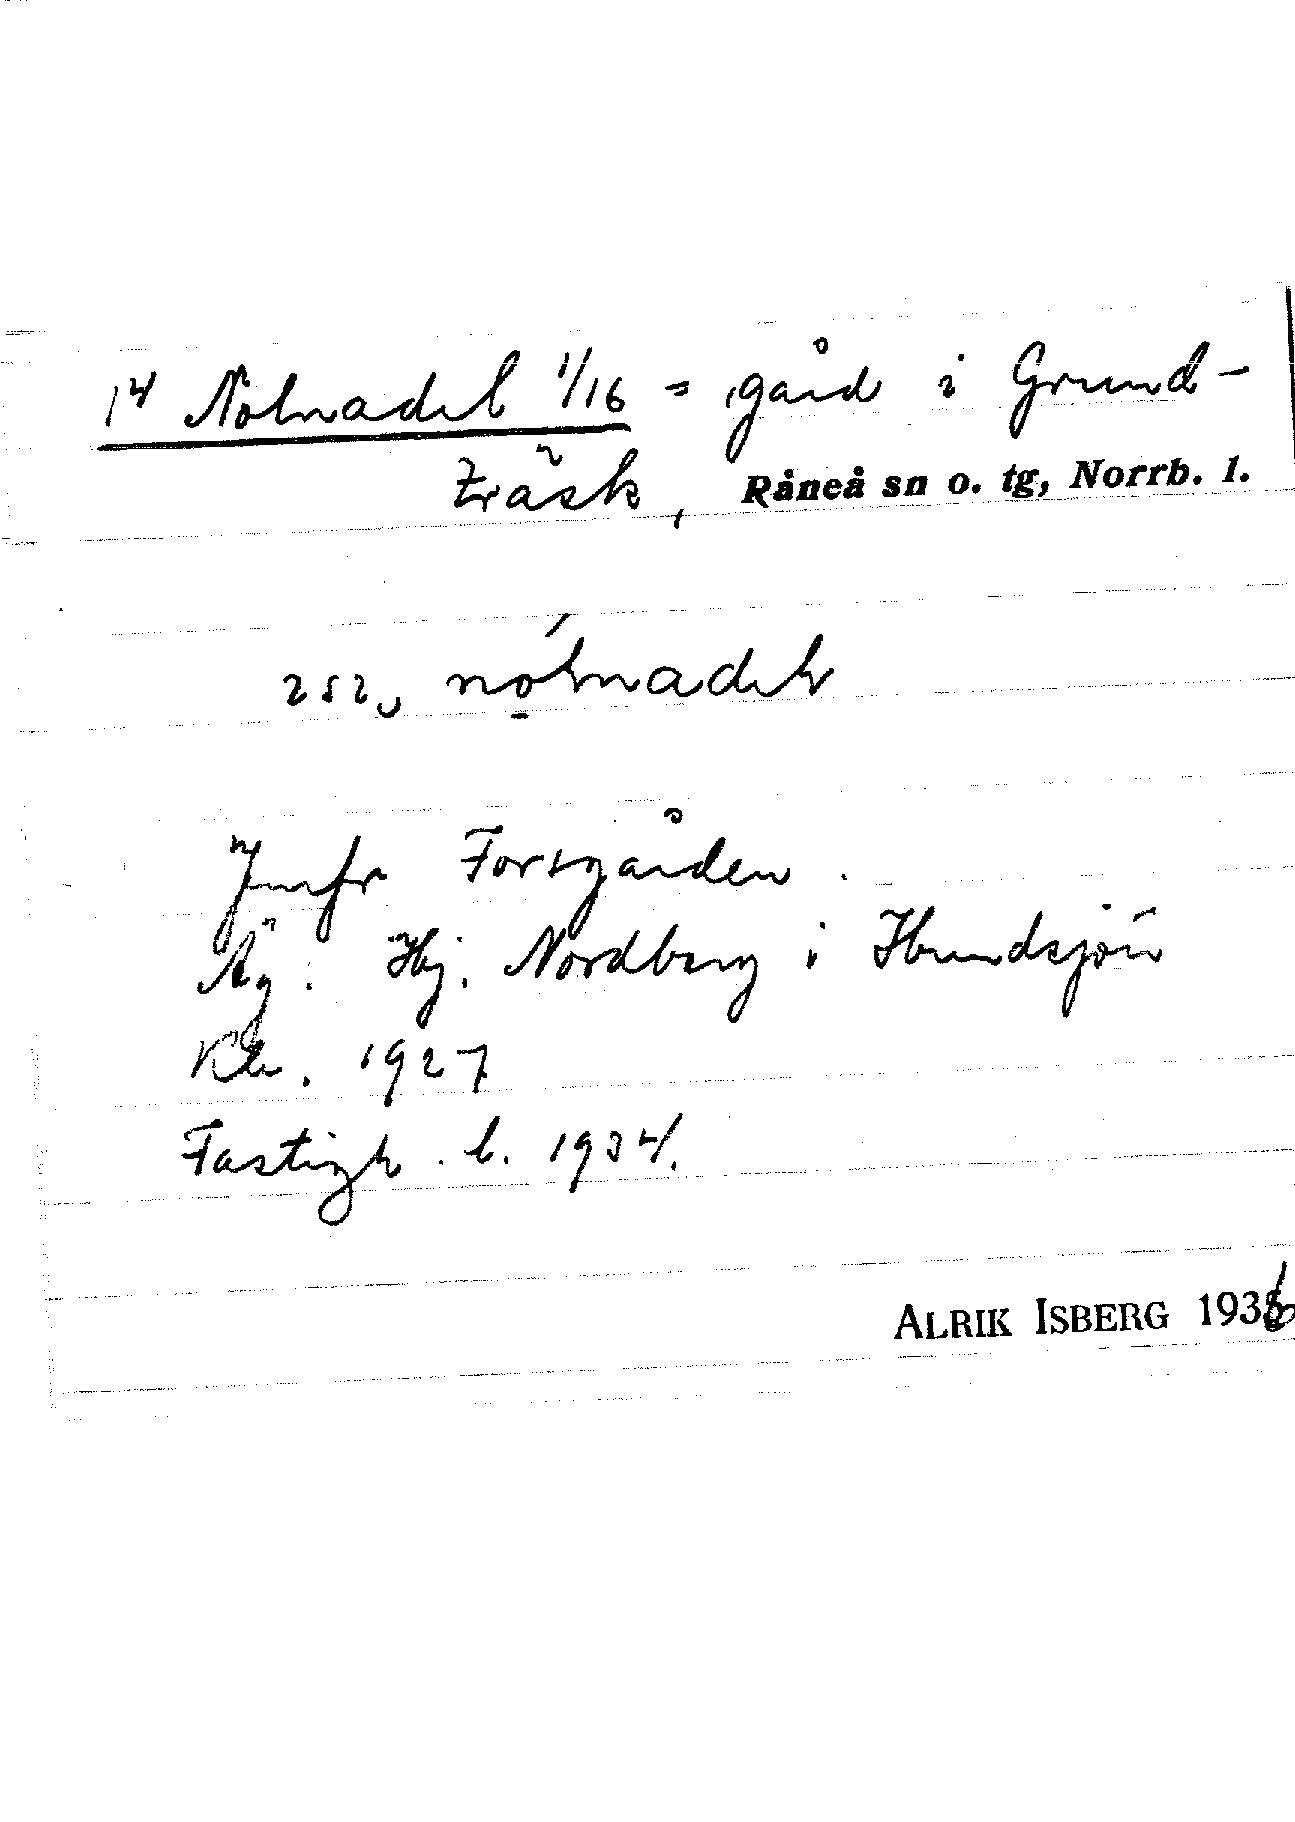 14 Nolnadel 1/16 = gård i Grund-
träsk, Råneå sn o. tg, Norrb. l.
Jmfr Forsgården.
Äg. Hj. Nordberg i Hundsjön
1927
Fastigh. b. 1934.
ALRIK ISBERG 1936